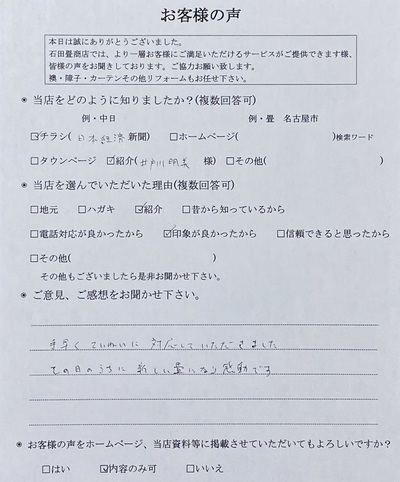 お客様の声
本日は誠にありがとうございました。
石田畳商店では、より一層お客様にご満足いただけるサービスがご提供できます様、
皆様の声をお聞きしております。ご協力お願い致します。
襖・障子・カーテンその他リフォームもお任せ下さい。
◉ 当店をどのように知りましたか?(複数回答可)
例・中日 例・畳 名古屋市
☑チラシ( 日本経済 新聞) □ホームページ( )検索ワード
□タウンページ ☑紹介( 井戸川 明美 様) □その他( )
◉ 当店を選んでいただいた理由(複数回答可)
□地元 □ハガキ ☑紹介 □昔から知っているから
□電話対応が良かったから ☑印象が良かったから □信頼できると思ったから
□その他( )
その他もございましたら是非お聞かせ下さい。
◉ ご意見、ご感想をお聞かせ下さい。
手早く ていねいに 対応していただきました
その日のうちに 新しい畳になり感動です
◉ お客様の声をホームページ、当店資料等に掲載させていただいてもよろしいですか?
□はい ☑内容のみ可 □いいえ